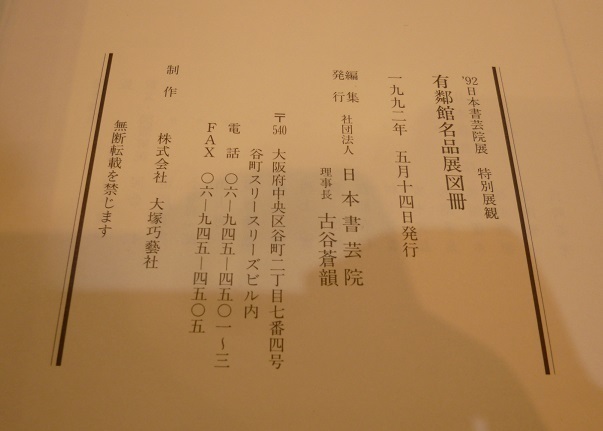 '92日本書芸院展 特別展観
有鄰館名品展図冊
一九九二年 五月十四日発行
編集
発行
社団法人 日本書芸院
理事長 古谷蒼韻
〒540 大阪府中央区谷町二丁目七番四号
谷町スリースリーズビル内
電話 〇六―九四五―四五〇一~三
FAX 〇六―九四五―四五〇五
制作 株式会社 大塚巧藝社
無断転載を禁じます